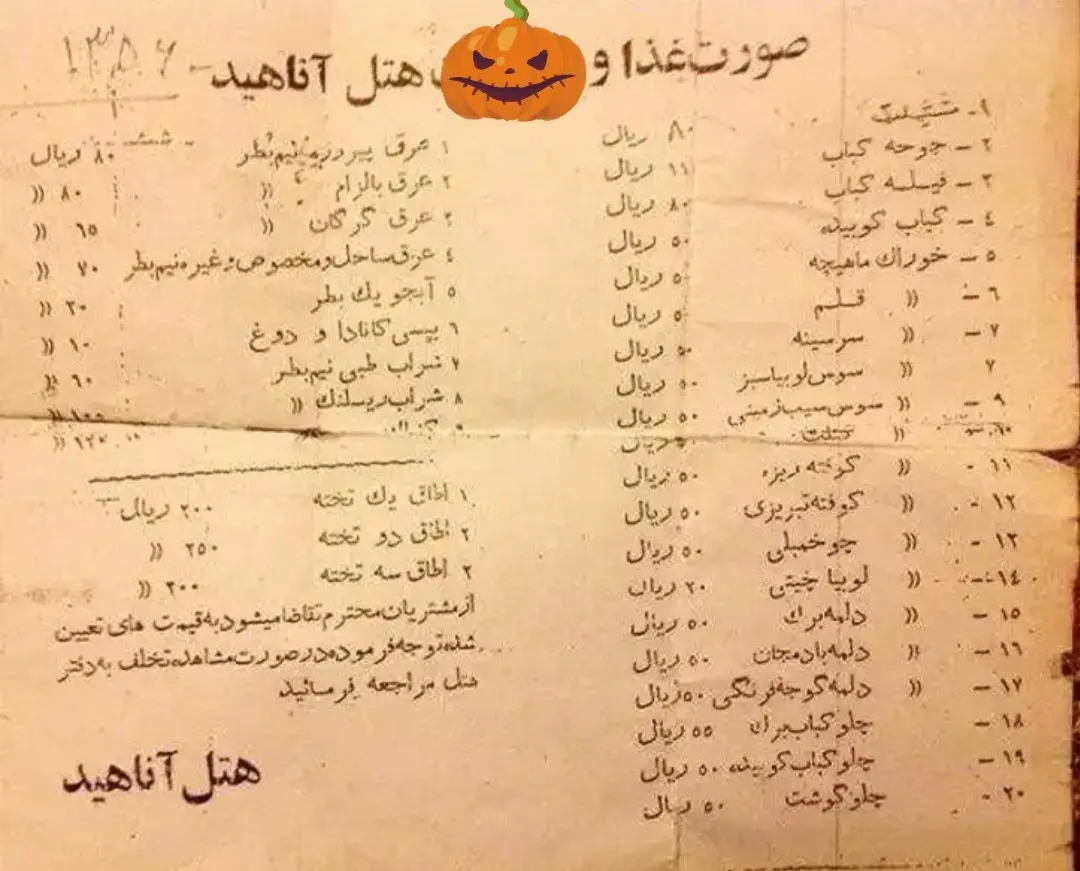 صورت غذا و هتل آناهید
۱۳۵۶
۱- شتیلیت ۸۰ ریال
۲- جوجه کباب ۱۱ ریال
۳- فیله کباب ۸۰ ریال
٤- کباب کوبیده ۵۰ ریال
۵- خوراك ماهیچه ۵۰ ریال
٦- » قلم ۵۰ ریال
۷- » سرسینه ۵۰ ریال
۷ » سوس لوبیا سبز ۵۰ ریال
۹- » سوس سیب زمینی ۵۰ ریال
۱۰- » کتلت ۵۰ ریال
۱۱- » کوفته ریزه ۵۰ ریال
۱۲- » کوفته تبریزی ۵۰ ریال
۱۳- » چوخمبلی ۵۰ ریال
۱٤- » لوبیا چیتی ۲۰ ریال
۱۵- » دلمه برك ۵۰ ریال
۱٦- » دلمه بادمجان ۵۰ ریال
۱۷- » دلمه گوجه فرنگی ۵۰ ریال
۱۸- چلو کباب برك ۵۵ ریال
۱۹- چلو کباب کوبیده ۵۰ ریال
۲۰- چلو گوشت ۵۰ ریال
۱ عرق نیم بطر ۸۰ ریال
۲ عرق بالزام » ۸۰ »
۳ عرق گرگان » ٦۵ »
٤ عرق ساحل و مخصوص و غیره نیم بطر ۷۰ »
۵ آبجو یك بطر ۳۰ »
٦ پپسی کانادا و دوغ ۱۰ »
۷ شراب طبی نیم بطر ٦۰ »
۸ شراب ریسلنك » ۱۰۰ »
۱۲۰ »
۱ اطاق یك تخته ۲۰۰ ریال
۲ اطاق دو تخته ۲۵۰ »
۳ اطاق سه تخته ۳۰۰ »
از مشتریان محترم تقاضا میشود به قیمت های تعیین
شده توجه فرموده در صورت مشاهده تخلف به دفتر
هتل مراجعه فرمائید
هتل آناهید